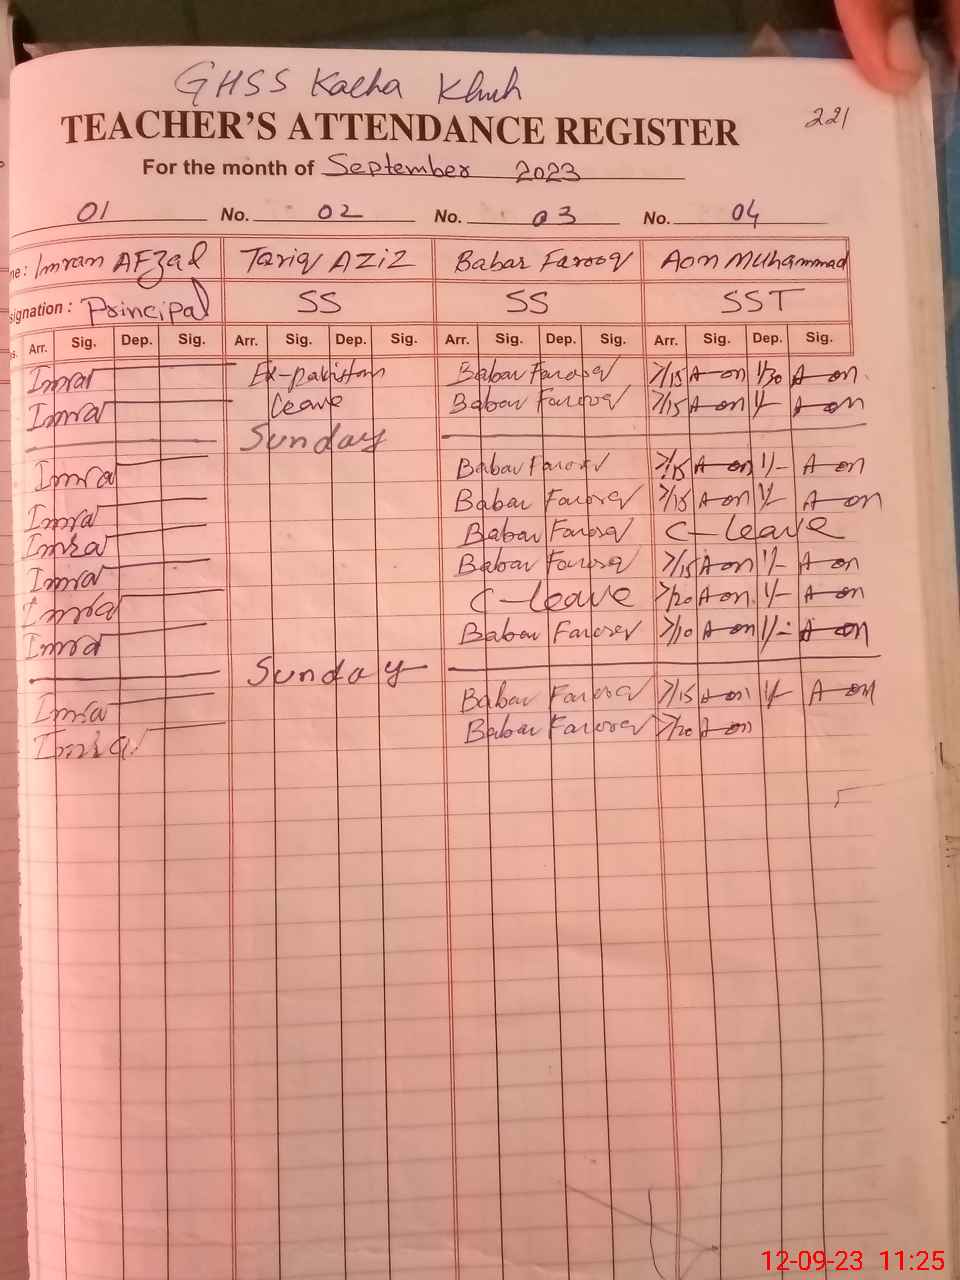 GHSS Kacha Khuh
TEACHER'S ATTENDANCE REGISTER 221
For the month of September 2023
01 No. 02 No. 03 No. 04
ne: Imran AFzal Tariq AZIZ Babar Farooq Aon Muhammad
signation : Principal SS SS SST
s. Arr. Sig. Dep. Sig. Arr. Sig. Dep. Sig. Arr. Sig. Dep. Sig. Arr. Sig. Dep. Sig.
Imra Ex-pakistan Babar Farooq 7/15 A on 1/30 A on
Imra Leave Babar Farooq 7/15 A on 1/- A on
Sunday
Imra Babar Farooq 7/15 A on 1/- A on
Imra Babar Farooq 7/15 A on 1/- A on
Imra Babar Farooq C-leave
Imra Babar Farooq 7/15 A on 1/- A on
Imra C-leave 7/20 A on 1/- A on
Imra Babar Farooq 7/10 A on 1/- A on
Sunday
Imra Babar Farooq 7/15 A on 1/- A on
Imra Babar Farooq 7/20 A on
12-09-23 11:25